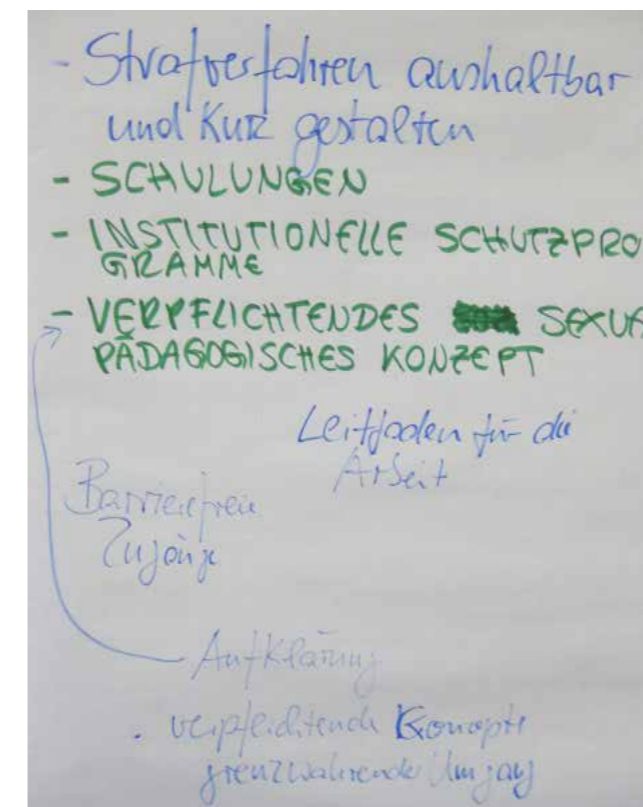 - Strafverfahren aushaltbar
und kurz gestalten
- SCHULUNGEN
- INSTITUTIONELLE SCHUTZPRO
GRAMME
- VERPFLICHTENDES SEXUA
PÄDAGOGISCHES KONZEPT
Leitfaden für die
Arbeit
Barrierefreie
Zugänge
Aufklärung
. verpflichtende Konzepte
grenzwahrende Umgang